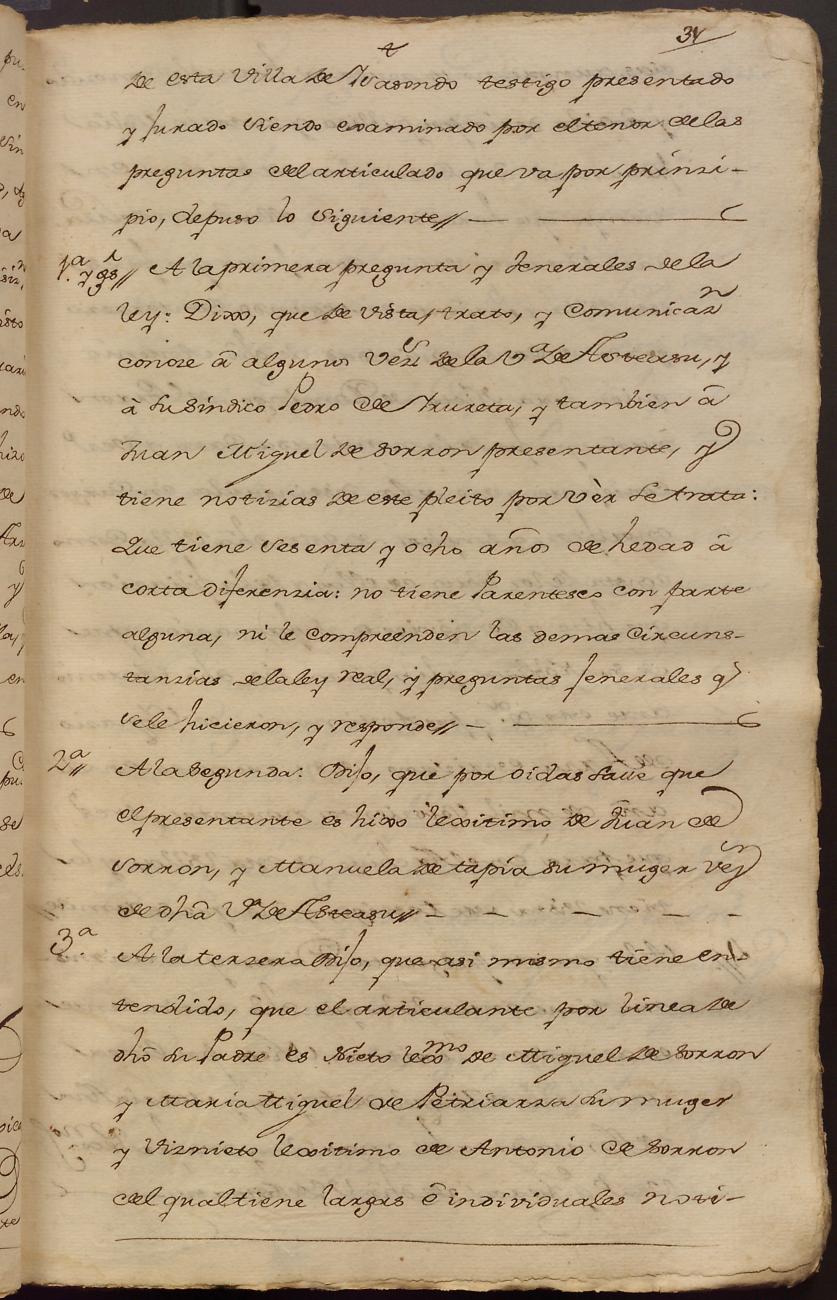 34
de esta Villa de Vsasondo testigo presentado
y Jurado siendo examinado por el tenor de las
preguntas del articulado que va por prinzi-
pio, depuso lo siguiente//
1ª y gs// A la primera pregunta y Jenerales de la
ley: Dixo, que de vista, trato, y Comunicazn
conoze â algunos Vezs de la Vª de Asteasu, y
â su síndico Pedro de Yrureta, y tambien â
Juan Miguel de Sorron presentante, y
tiene notizias de este pleito por vèr se trata:
Que tiene sesenta y ocho años de hedad â
corta diferenzia: no tiene Parentesco con parte
alguna, ni le compreenden las demas Circuns-
tanzias de la ley real, y preguntas Jenerales q
se le hicieron, y responde//
2ª// A la Segunda: Dijo, que por oidas save que
el presentante es hixo lexitimo de Juan de
Sorron, y Manuela de tapia su muger vezs
de dha Vª de Asteasu//
3ª A la terzera Dijo, que asi mismo tiene en-
tendido, que el articulante por linea de
dho su Padre es Nieto lexmo de Miguel de Sorron
y Maria Miguel de Petriarza su muger
y Viznieto lexitimo de Antonio de Sorron
del qual tiene largas ê individuales noti-